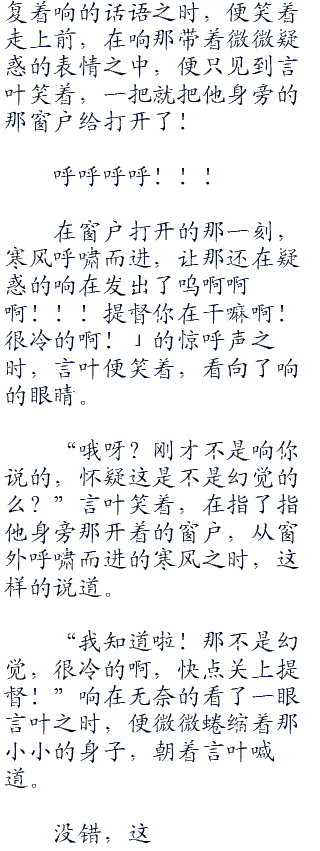 复着响的话语之时，便笑着
走上前，在响那带着微微疑
惑的表情之中，便只见到言
叶笑着，一把就把他身旁的
那窗户给打开了！
呼呼呼呼！！！
在窗户打开的那一刻，
寒风呼啸而进，让那还在疑
惑的响在发出了呜啊啊
啊！！！提督你在干嘛啊！
很冷的啊！」的惊呼声之
时，言叶便笑着，看向了响
的眼睛。
“哦呀？刚才不是响你
说的，怀疑这是不是幻觉的
么？”言叶笑着，在指了指
他身旁那开着的窗户，从窗
外呼啸而进的寒风之时，这
样的说道。
“我知道啦！那不是幻
觉，很冷的啊，快点关上提
督！”响在无奈的看了一眼
言叶之时，便微微蜷缩着那
小小的身子，朝着言叶喊
道。
没错，这